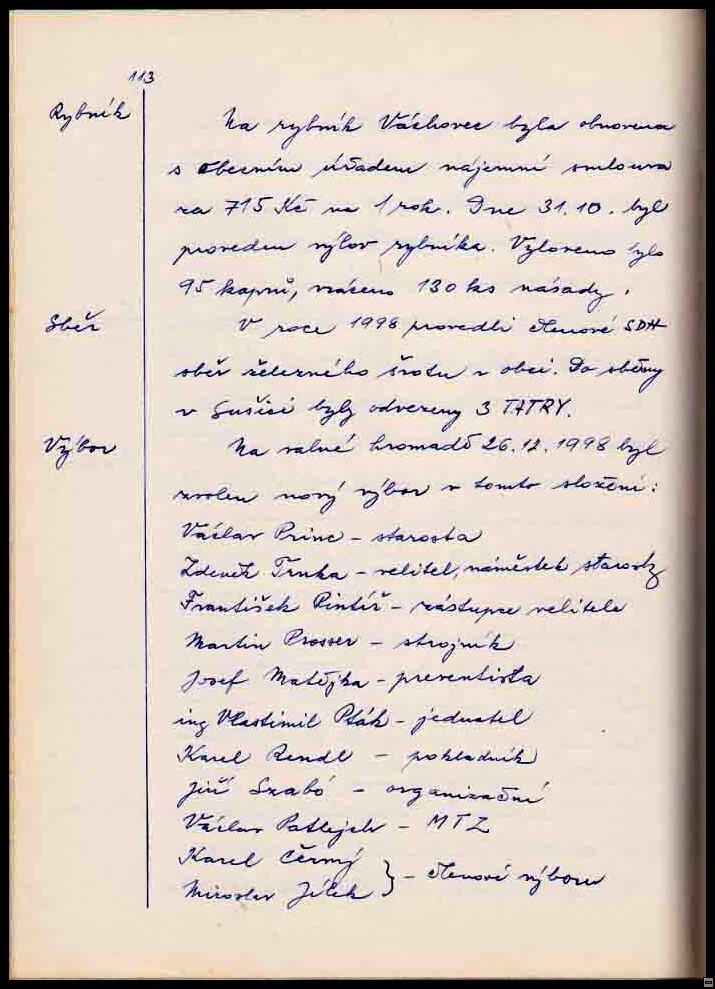 113
Rybník
Na rybník Váchovec byla obnovena
s obecním úřadem nájemní smlouva
za 715 Kč na 1 rok. Dne 31.10. byl
proveden výlov rybníka. Vyloveno bylo
95 kaprů, vráceno 130 ks násady.
Sběr
V roce 1998 provedli členové SDH
sběr železného šrotu v obci. Do sběrny
v Sušici byly odvezeny 3 TATRY.
Výbor
Na valné hromadě 26.12.1998 byl
zvolen nový výbor v tomto složení:
Václav Princ - starosta
Zdeněk Trnka - velitel, náměstek starosty
František Pintíř - zástupce velitele
Martin Prosser - strojník
Josef Matějka - preventista
ing Vlastimil Pták - jednatel
Karel Rendl - pokladník
Jiří Szabó - organizační
Václav Patlejch - MTZ
Karel Černý
Miroslav Jílek } - členové výboru